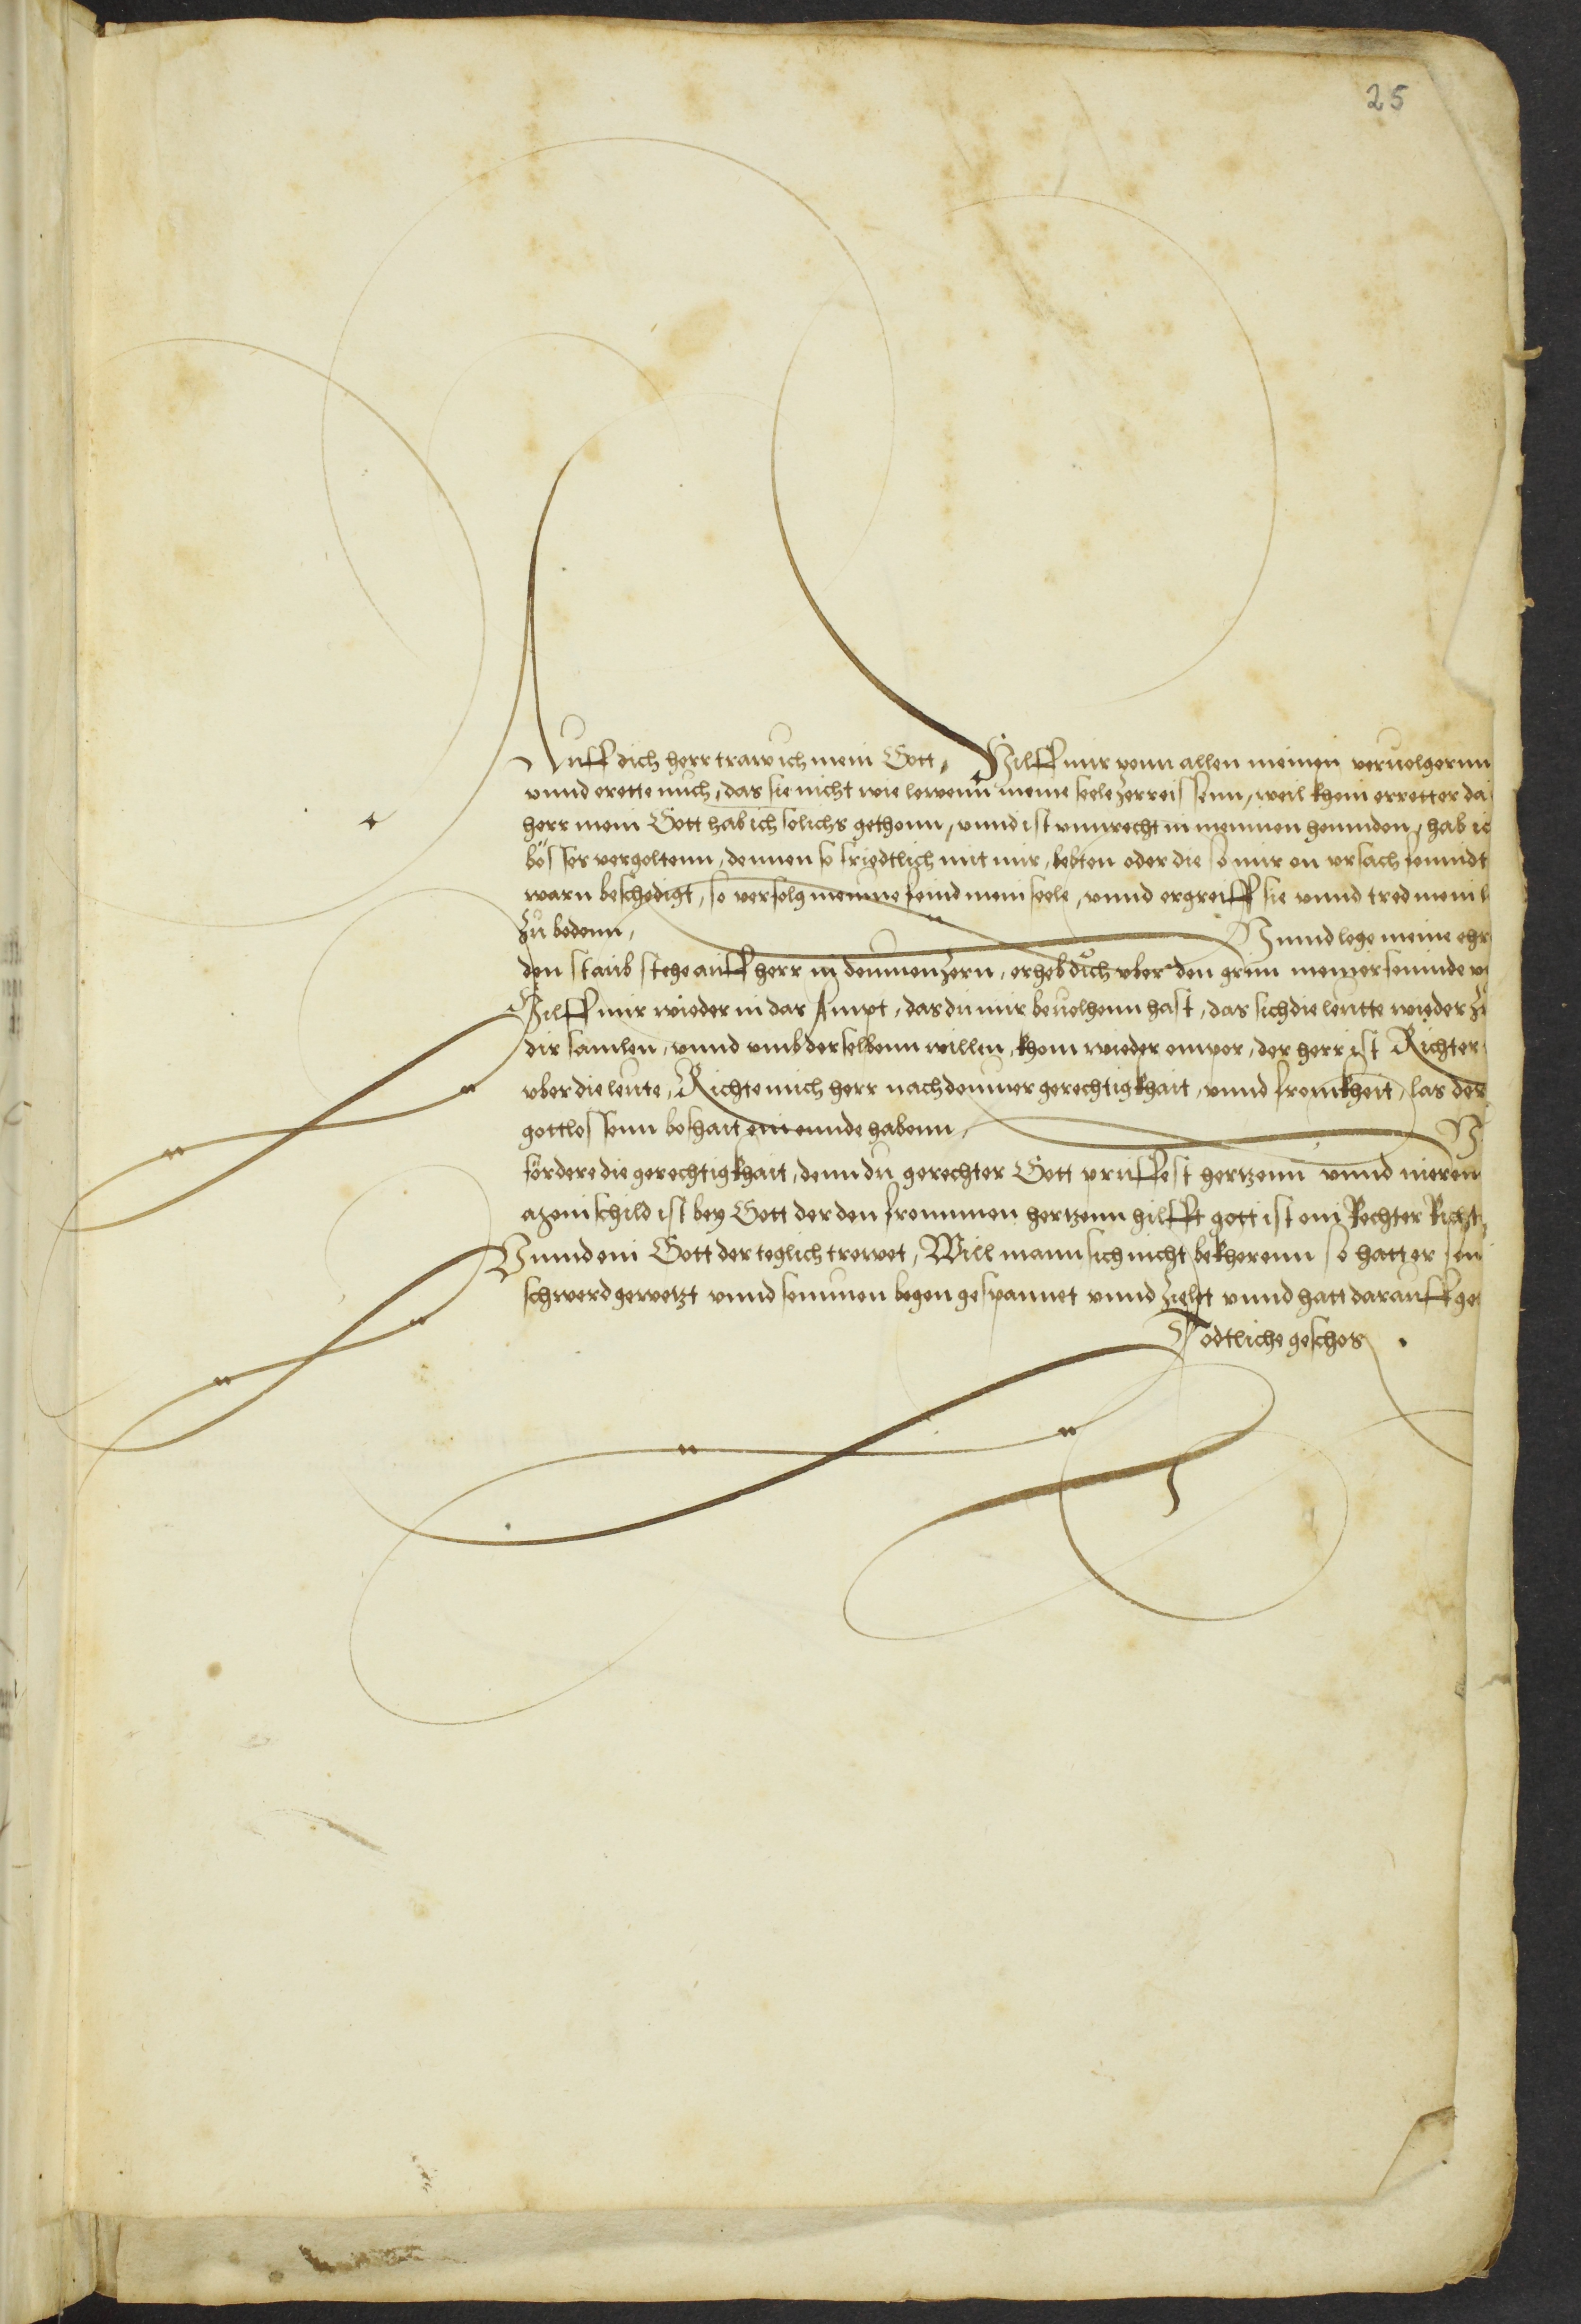 25
Auff dich herr traw ich mein Gott, Hilff mir vonn allen meinen veruolgernn
vnnd erette mich, das sie nicht wie lewenn meine seele zerreissenn, weil khein erretter da
herr mein Gott hab ich solichs gethonn, vnnd ist vnnrecht in meinnen hennden, hab ic
böser vergoltenn, dennen so friedtlich mit mir, lebten oder die so mir on vrsach feinndt
warn beschedigt, so verfolg meinne feind mein seele, vnnd ergreiff sie vnnd tred mein l
zu bodenn, Vnnd lege meine ehr
den staub stehe auff herr in deinnen zorn, erheb dich vber den grim meiner feinnde v
Hilff mir wieder in das Ampt, das du mir beuolhenn hast, das sich die leutte wieder zu
dir samlen, vnnd vmb derselbenn willen, khom wieder empor, der herr ist Richter
vber die leute, Richte mich herr nach deinner gerechtigkhait, vnnd fromkheit, las der
gottlossenn boshait ein ennde habenn, V
fördere die gerechtigkhait, denn du gerechter Gott prüffest hertzenn vnnd nieren
mein schild ist bey Gott der den frommen hertzenn hilfft gott ist ein Rechter Richt
Vnnd ein Gott der teglich trewet, Will mann sich nicht bekherenn so hatt er sein
schwerd gewetzt vnnd seinnen bogen gespannet vnnd zielet vnnd hatt darauff ge
Todtliche geschos .